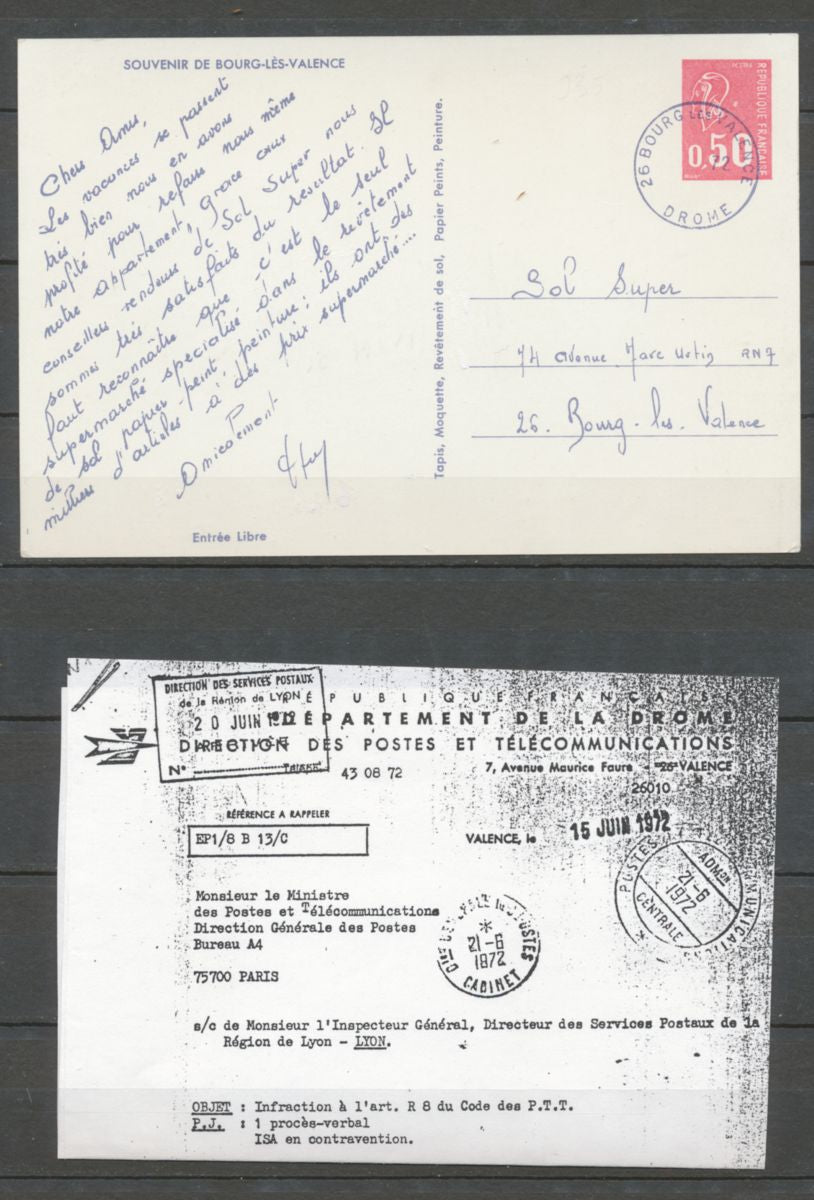 SOUVENIR DE BOURG-LÈS-VALENCE
Chers Amis,
Les vacances se passent
très bien nous en avons
profité pour refaire nous même
notre appartement, Grace aux
conseillers vendeurs de Sol Super nous
sommes très satisfaits du resultat. Il
faut reconnaître que c'est le seul
supermarché specialisé dans le revêtement
de sol, papier-peint, peinture; ils ont des
milliers d'articles à des prix supermarché....
Amicalement
Entrée Libre
Tapis, Moquette, Revêtement de sol, Papier Peints, Peinture.
REPUBLIQUE FRANÇAISE
0,50
26 BOURG LES VALENCE
72
DROME
Sol Super
74 avenue Marc Urtin RN7
26. Bourg-les-Valence
DIRECTION DES SERVICES POSTAUX
de la Région de LYON
20 JUIN 1972
ARRIVEE
N°
RÉPUBLIQUE FRANÇAISE
DÉPARTEMENT DE LA DROME
DIRECTION DES POSTES ET TÉLÉCOMMUNICATIONS
43 08 72
7, Avenue Maurice Faure - 26-VALENCE
26010
RÉFÉRENCE A RAPPELER
EP1/8 B 13/C
VALENCE, le
15 JUIN 1972
POSTES
ADMon
21-6
1972
CENTRALE
Monsieur le Ministre
des Postes et Télécommunications
Direction Générale des Postes
Bureau A4
75700 PARIS
POSTES
21-6
1972
CABINET
s/c de Monsieur l'Inspecteur Général, Directeur des Services Postaux de la
Région de Lyon - LYON.
OBJET : Infraction à l'art. R 8 du Code des P.T.T.
P.J. : 1 procès-verbal
ISA en contravention.